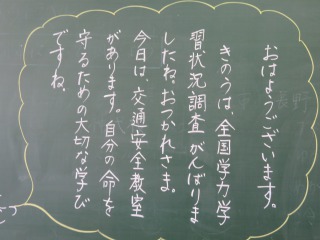 おはようございます。
きのうは、全国学力学
習状況調査がんばりま
したね。おつかれさま。
今日は、交通安全教室
があります。自分の命を
守るための大切な学び
ですね。